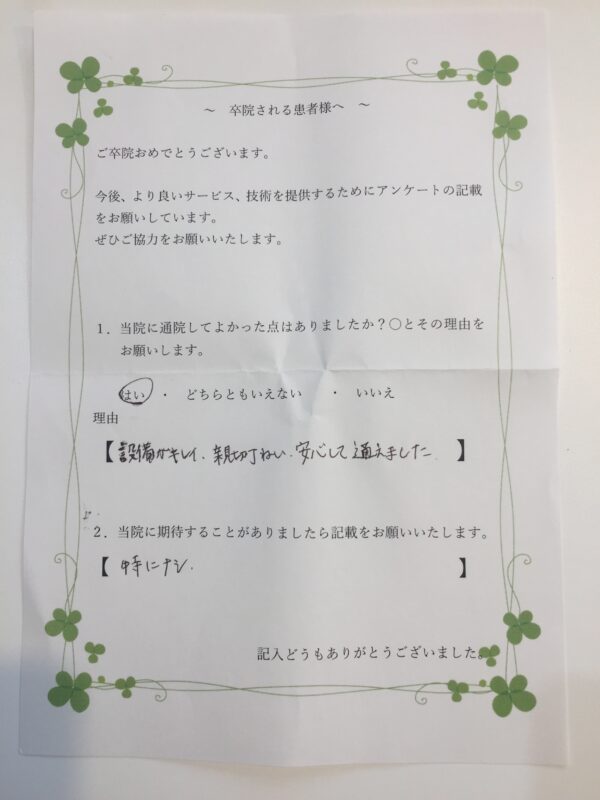 ～ 卒院される患者様へ ～
ご卒院おめでとうございます。
今後、より良いサービス、技術を提供するためにアンケートの記載
をお願いしています。
ぜひご協力をお願いいたします。
１．当院に通院してよかった点はありましたか？〇とその理由を
お願いします。
はい ・ どちらともいえない ・ いいえ
理由
【設備がキレイ、親切丁ねい、安心して通えました 】
２．当院に期待することがありましたら記載をお願いいたします。
【 特にナシ． 】
記入どうもありがとうございました。